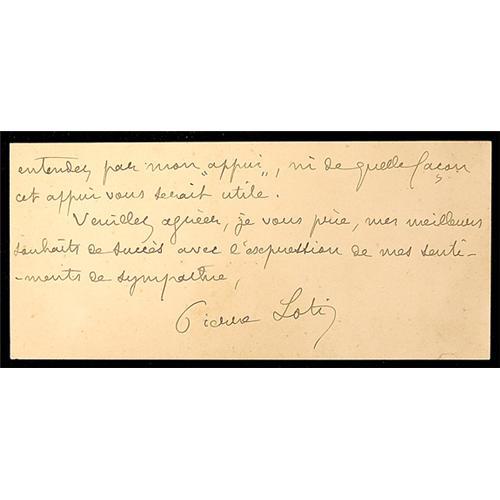 entendez par mon „appui„, ni de quelle façon
cet appui vous serait utile.
Veuillez agréer, je vous prie, mes meilleurs
souhaits de succès avec l'expression de mes senti-
-ments de sympathie,
Pierre Loti